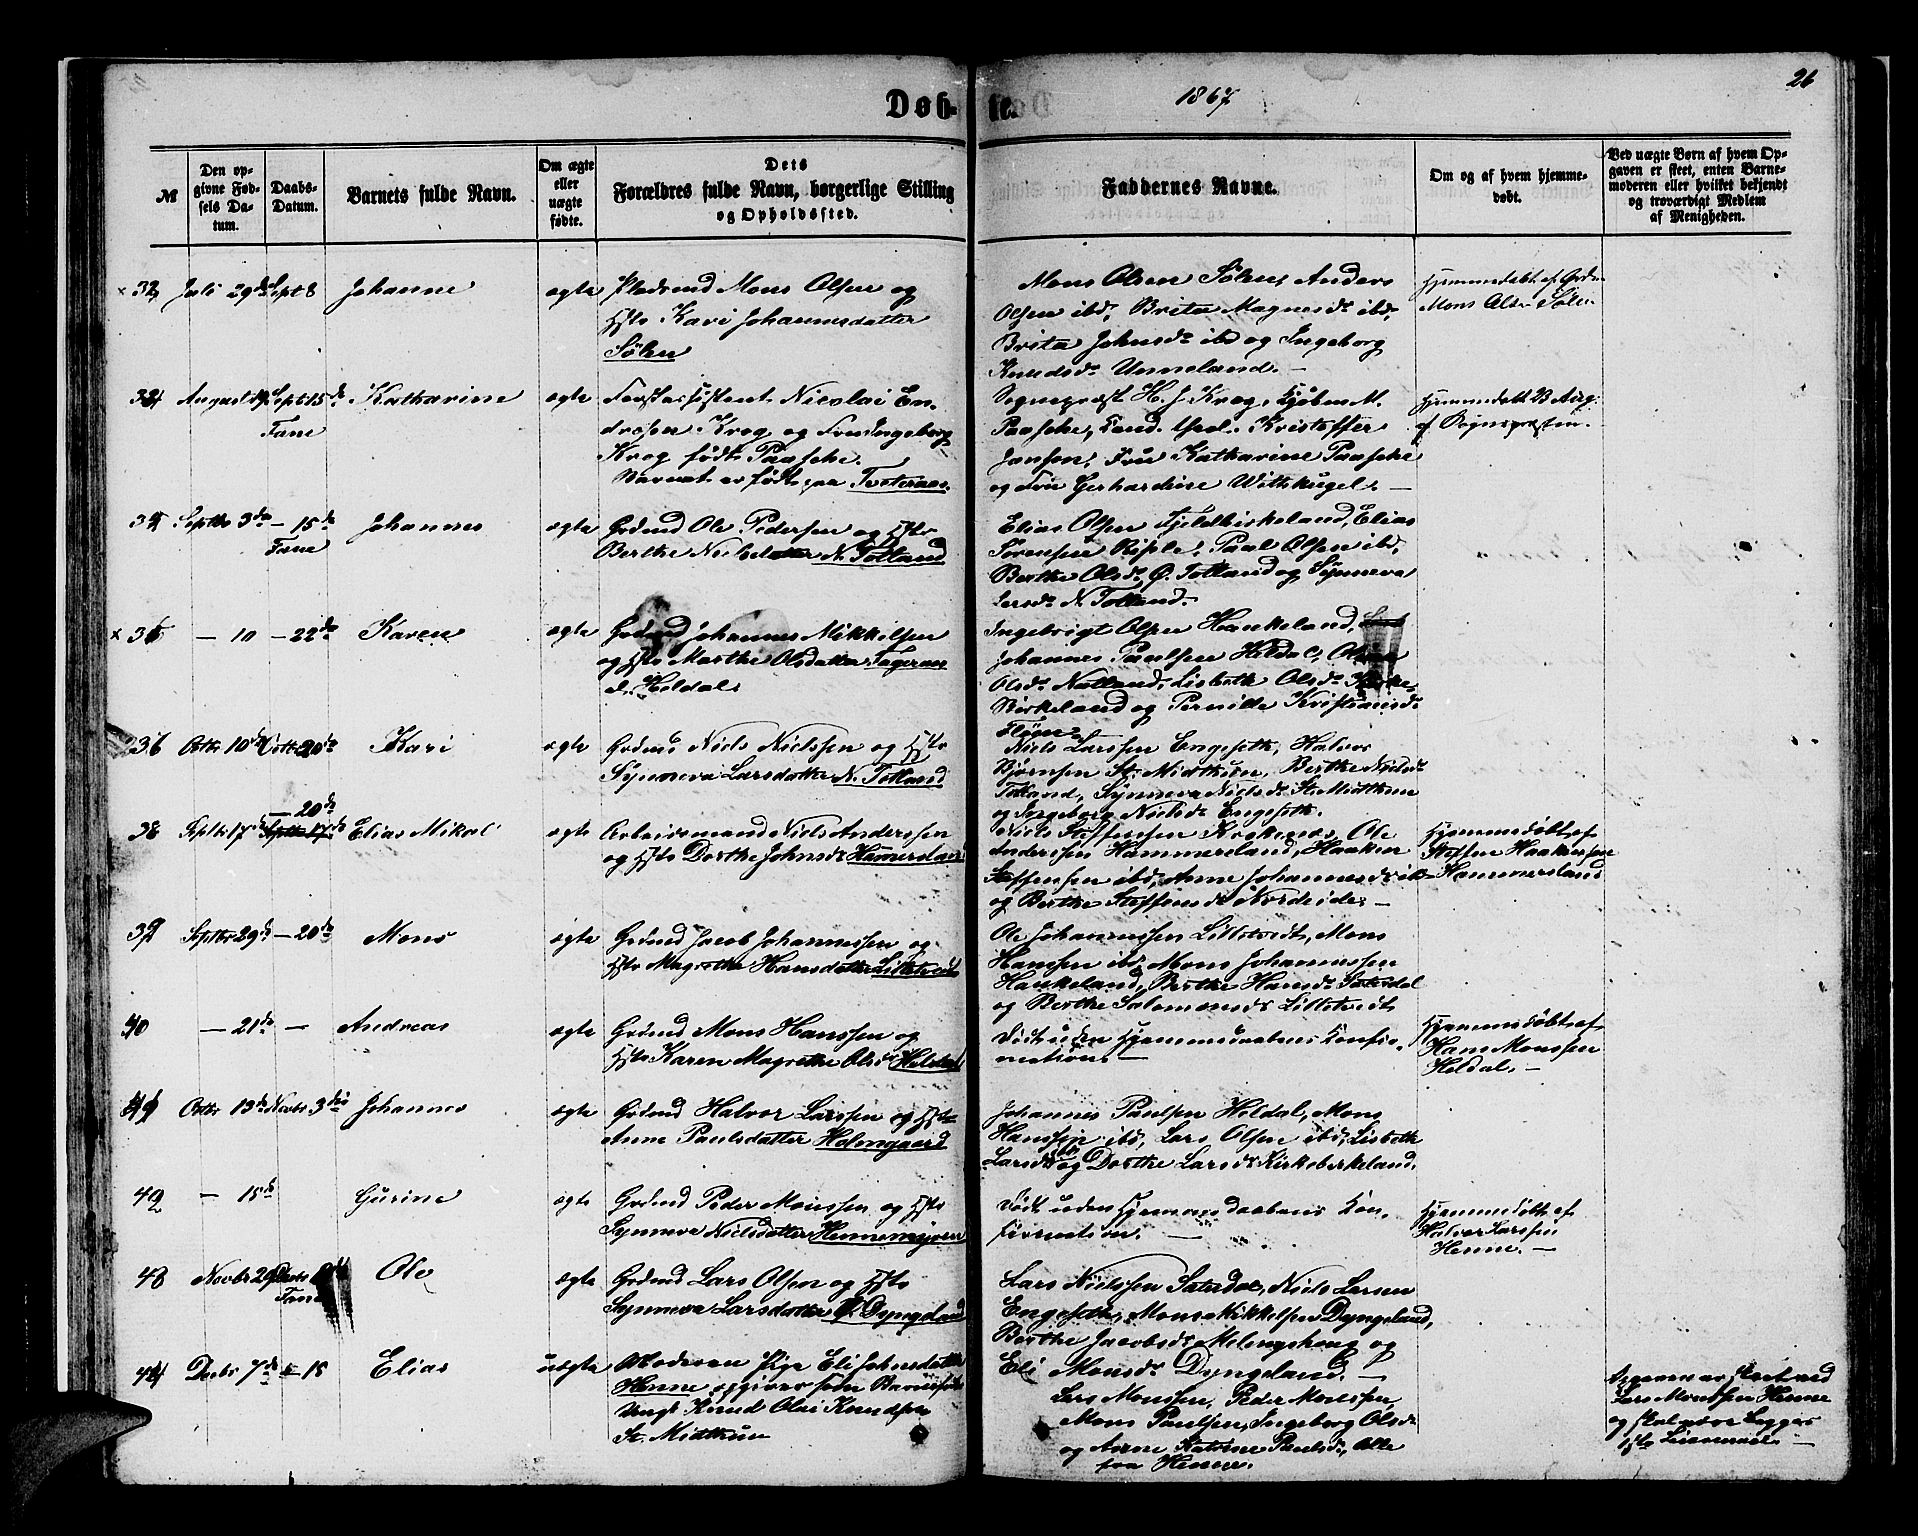 Døb-
te.
1867
26
№
Den op-
givne Fød-
sels Da-
tum.
Daabs-
Datum.
Barnets fulde Navn.
Om ægte
eller
uægte
fødte.
Dets
Forældres fulde Navn, borgerlige Stilling
og Opholdssted.
Faddernes Navne.
Om og af hvem hjemme-
døbt.
Ved uægte Børn af hvem Op-
gaven er skeet, enten Barne-
moderen eller hvilket bekjendt
og troværdigt Medlem
af Menigheden.
Juli 29de Sept 8 Johanne ægte Pladsmd Mons Olsen og
Hst Kari Johannesdatter
Sølen
Mons Olsen Sølen, Anders
Olsen ibd, Brita Magnesdr ibd,
Brita Johnsdr ibd og Ingeborg
Knudsdr Unneland.
Hjemmedøbt af Grdm
Mons Olsen Sølen
August Sept 15de Katharine ægte Forstassistent Nicolai En-
Fane
dresen Krog og Fru Ingeborg
Krog født Paasche.
Barnet er født paa Tveteraas.
Sognepræst H. J. Krog, Kjøbm M.
Paasche, Cand. theol. Kristoffer
Janson, Fru Katharine Paasche
og Fru Gerhardine Wittkugel.
Hjemmedøbt 23 Aug.
af Sognepræsten.
Septbr 3de - 15de Johannes ægte Grdmd Ole Pedersen og Hst
Fane
Berthe Nielsdatter N. Totland
Elias Olsen Fjeldbirkeland, Elias
Sørensen Riple, Paul Olsen ibd,
Berthe Olsdr Ø. Totland og Synneva
Larsdr N. Totland.
- 10 - 22de Karen ægte Grdmd Johannes Mikkelsen
og Hst Marthe Olsdatter Fageraas
d. Heldal.
Ingebrigt Olsen Haukeland,
Johannes Paulsen Heldal,
Olsdr Natland, Lisbeth Olsdr Kirke-
Birkeland og Pernille Kristiansdr
Fløen
36 Octbr 10de Octbr 20de Kari ægte Grdmd Niels Nielssen og Hst
Synneva Larsdatter N. Totland
Niels Larssen Engesæth, Halvor
Bjørnsen St. Midthun, Berthe Nielsdr
Totland, Synneva Nielsdr St. Midthun
og Ingeborg Nielsdr Engesæth.
38 Septbr 17de - 20de Elias Mikal ægte Arbeidsmand Niels Anderssen
og Hst Dorthe Johnsdr Hamersland
Niels Steffensen Krokenæs, Ole
Anderssen Hammersland, Haaken
Steffensen ibd, Anne Johannesdr ibd
og Berthe Steffensdr Nordeide.
Hjemmedøbt af
Steffen Haakenssen
Hammersland
39 Septbr 29de - 20de Mons ægte Grdmd Jacob Johannessen og
Hst Magrethe Hansdatter Lilletvedt
Ole Johannessen Lilletvedt, Mons
Hansen ibd, Mons Johannessen
Haukeland, Berthe Hansdr Sætredal
og Berthe Salomonsdr Lilletvedt
40 - 21de - Andreas ægte Grdmd Mons Hanssen og
Hst Karen Magrethe Olsdr Heldal
Død uden Hjemmedaabens Konfir-
mation.
Hjemmedøbt af
Hans Monssen
Heldal.
41 Octbr 13de Novbr 3die Johannes ægte Grdmd Halvor Larssen og Hst
Anne Paulsdatter Holmgaard
Johannes Paulsen Heldal, Mons
Hanssen ibd, Lars Olsen ibd, Lisbeth
Larsdr ibd og Dorthe Larsdr Kirkebirkeland.
42 - 15de Gurine ægte Grdmd Peder Monssen og Hst
Synneva Nielsdatter Hennemyren
Død uden Hjemmedaabens Kon-
firmation.
Hjemmedøbt af
Halvor Larssen
Henne.
43 Novbr Decbr Ole ægte Grdmd Lars Olsen og Hst
Fane
Synneva Larsdatter Ø. Dyngeland
Lars Nielssen Sæterdal, Niels Larsen
Engesæth, Mons Mikkelsen Dyngeland,
Berthe Jacobsdr Melingshoug og
Eli Monsdr Dyngeland.
44 Decbr 7de - 15 Elias uægte Moderen Pige Eli Johnsdatter
Henne opgiver som Barnefader
Ungk Knud Olai Knudsen
St. Midthun
Lars Monssen, Peder Monssen,
Mons Paulsen, Ingeborg Olsdr
og Anne Katrine Paulsdr, Alle
fra Henne.
Lars Monssen Henne
og skal være Begges
1ste Leiermaal.